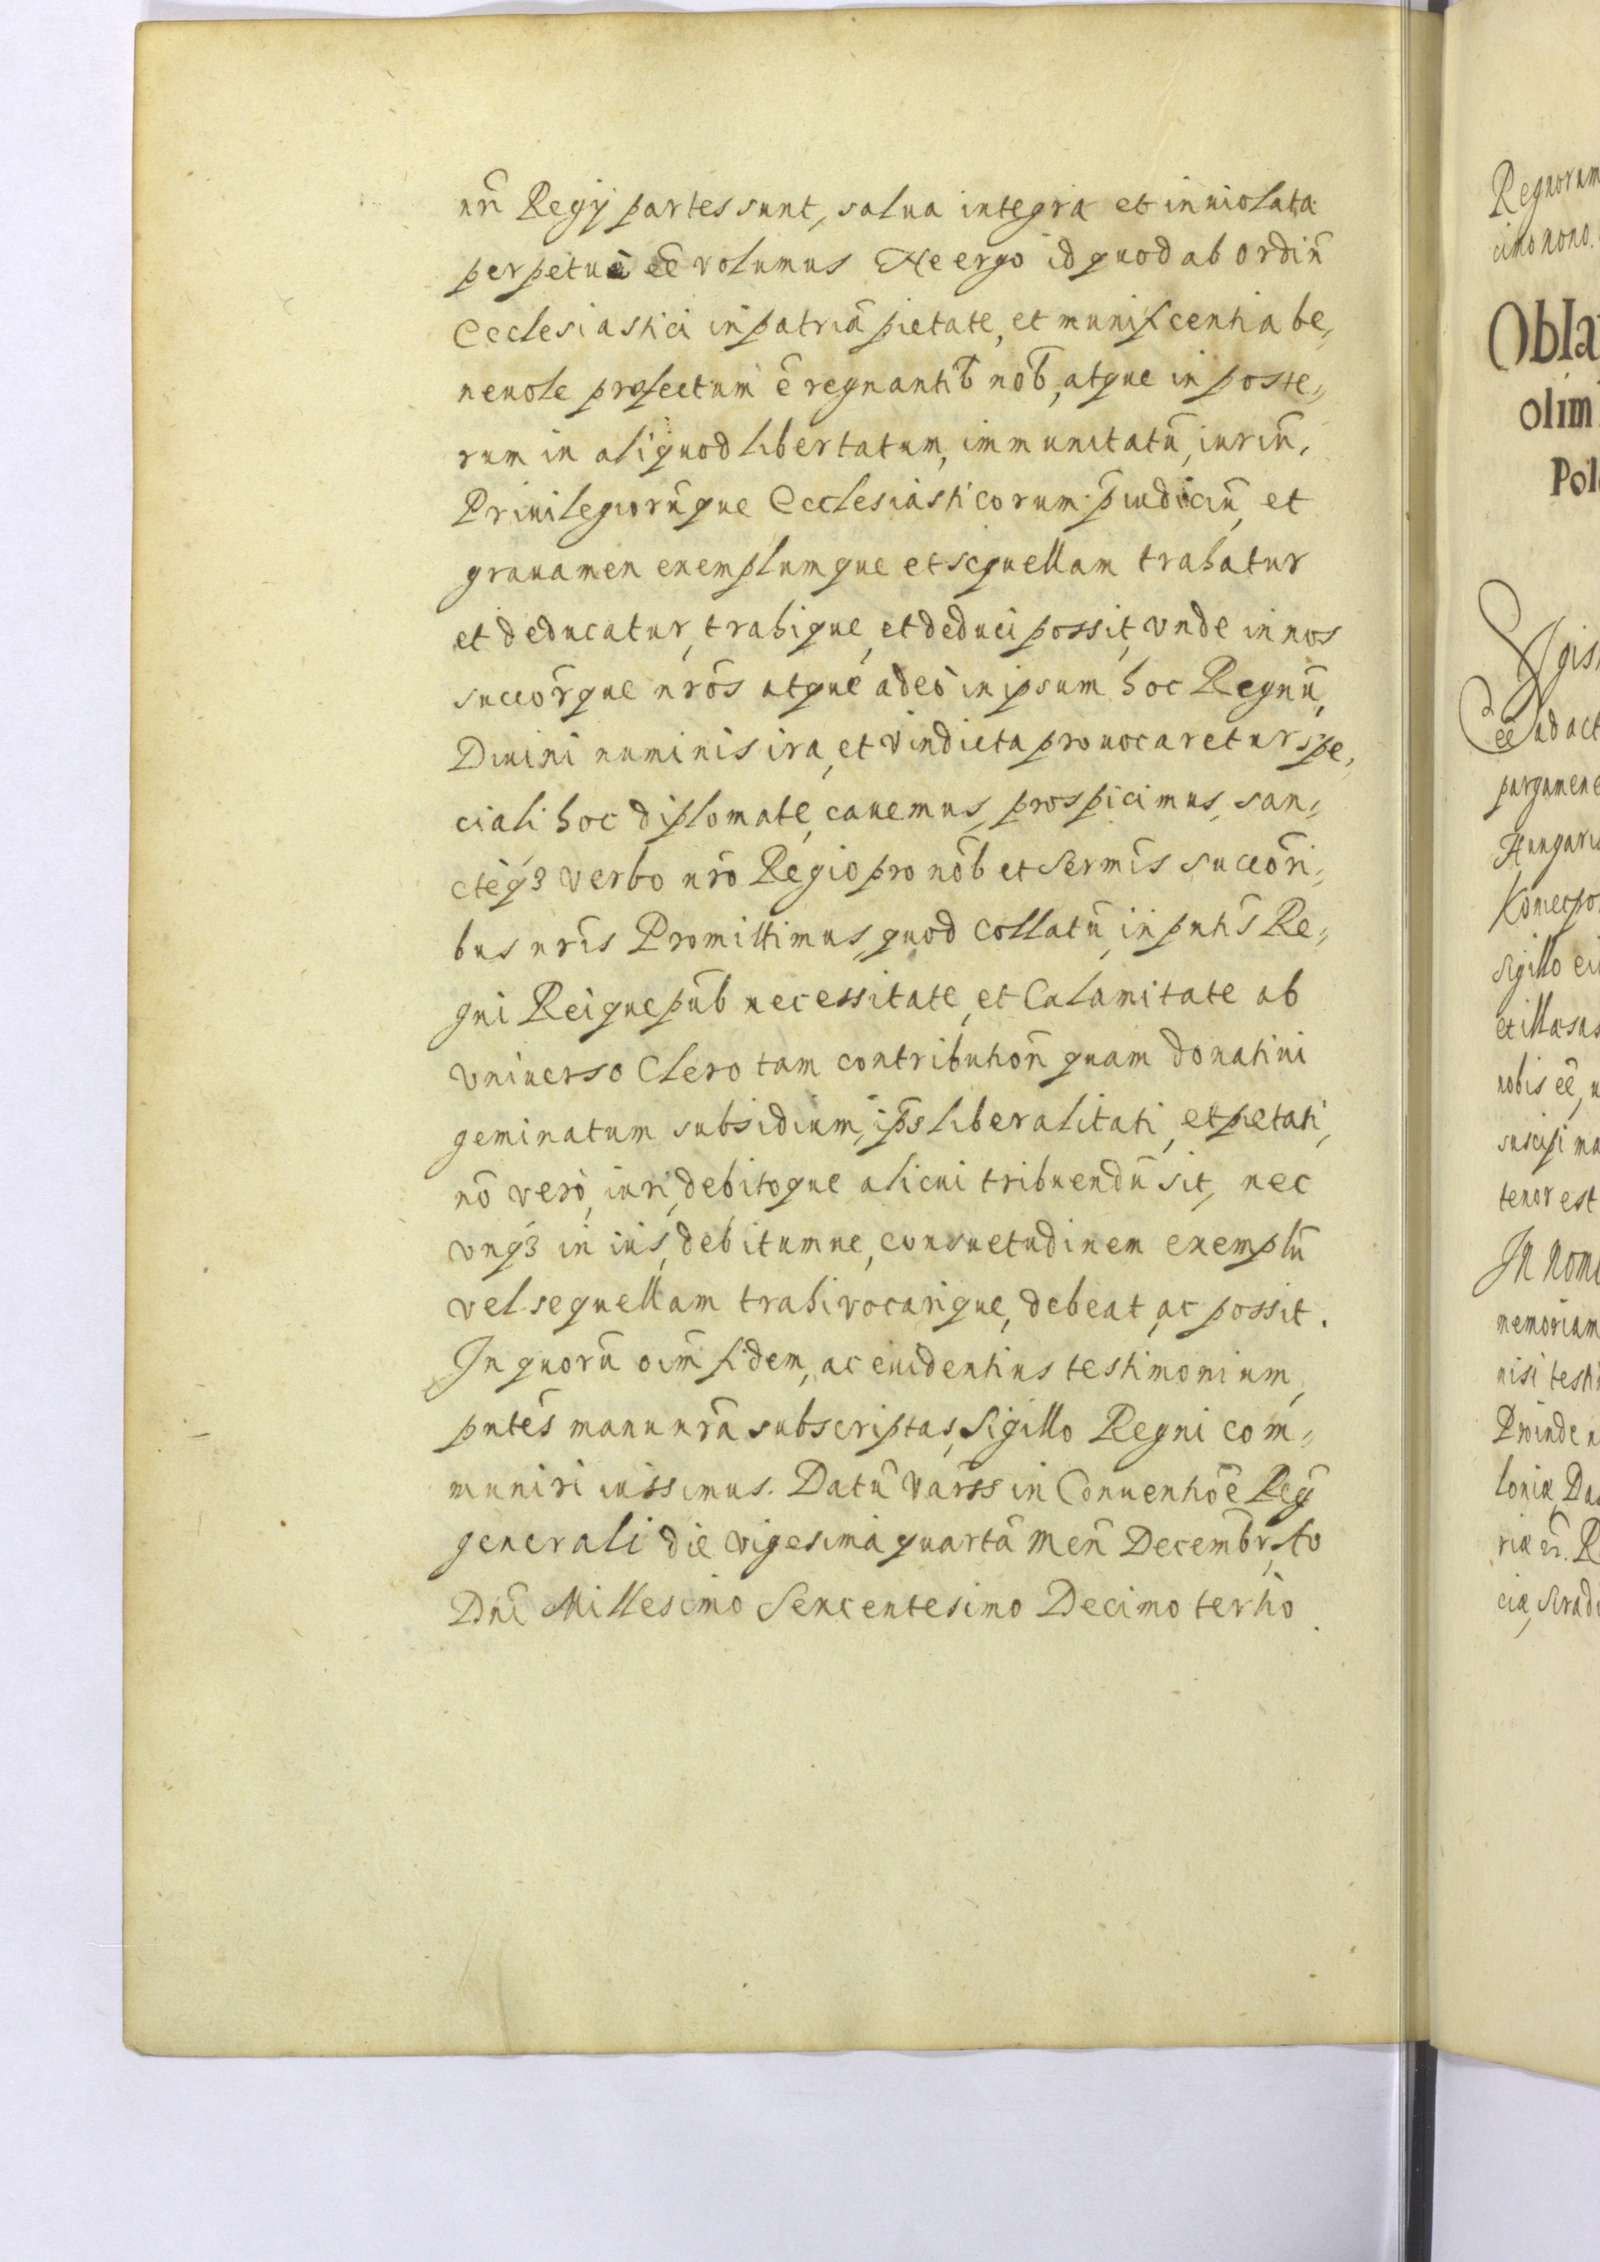 nr̃i Regÿ partes sunt, salua integra et inuiolata
perpetuò eẽ volumus Ne ergo id quod ab ordiñ
Ecclesiastici in patriã pietate, et munificentia be„
neuole profectum ẽ regnantib̃ nob̃, atque in poste„
rum in aliquod libertatum, immunitatũ, iuriũ,
Priuilegiorũque Ecclesiasticorum p̃iudiciũ, et
grauamen exemplumque et sequellam trahatur
et deducatur, trahique, et deduci possit, vnde in nos
succor̃que nrõs atque adeò in ipsum hoc Regnũ,
Diuini numinis ira, et vindicta prouocaretur, spe„
ciali hoc diplomate, cauemus, prospicimus, san„
ctèq3 verbo nrõ Regio pro nob̃ et Sermis̃ succor̃i„
bus nris̃ Promittimus, quod collatũ in pntis̃ Re„
gni Reique pub̃ necessitate, et Calamitate ab
vniuerso Clero tam contributioñ quam donatiui
geminatum subsidium, ip̃s liberalitati, et pietati,
nõ verò, iuri, debitoque alicui tribuendũ sit, nec
vnq3 in ius, debitumue, consuetudinem exemplũ
vel sequellam trahi vocarique, debeat, ac possit.
In quorũ oim̃ fidem, ac euidentius testimonium,
pntẽs manu nrã subscriptas, Sigillo Regni com̃„
muniri iussimus. Datũ Varss in Conuentiõe Reg̃
generali die vigesima quartã Meñ Decembr̃, Ao
Dni Millesimo Sexcentesimo Decimo tertio.
Regnorum
cimo nono.
Obla
olim
Pol
Sigis
eẽ ad act
pargamene
Hungari
Koniecpo
Sigillo ei
et illæsas
nobis eẽ, u
suscipi ma
tenor est
In nomi
memoriam
nisi testi
Proinde n
loniæ, Da
riæ etc̃. R
ciæ, Siradi